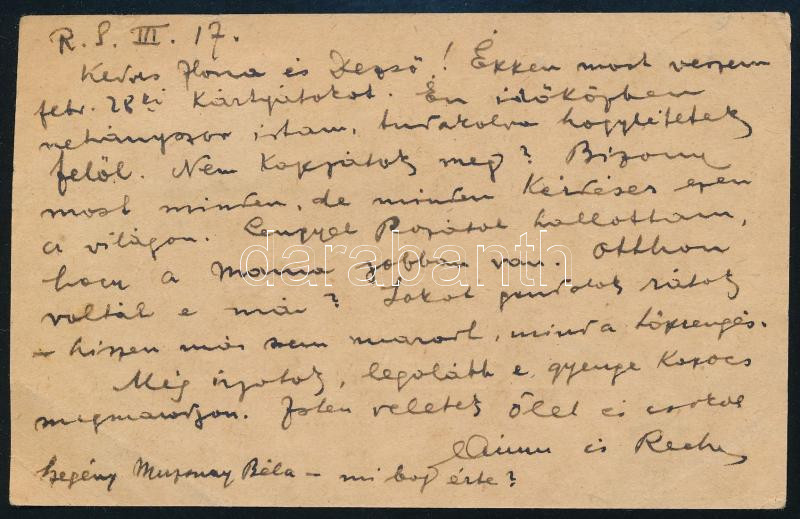 R. S. III. 17.
Kedves Ilona és Dezső! Ékken most veszem
febr. 28ki kártyátokat. Én időközben
nehányszor irtam, tudakolva hogylétetek
felől. Nem kapjátok meg? Bizony
most minden, de minden kérdéses ezen
a világon. Lengyel Rozától hallottam,
hogy a Mama jobban van. Otthon
voltál e már? Sokat gondolok rátok
– hiszen más sem maradt, mind a
Még irjatok, legalább e gyenge kapocs
megmaradjon. Isten veletek ölel és csókol
és
Szegény Muzsnay Béla – mi baj érte?
darabanth